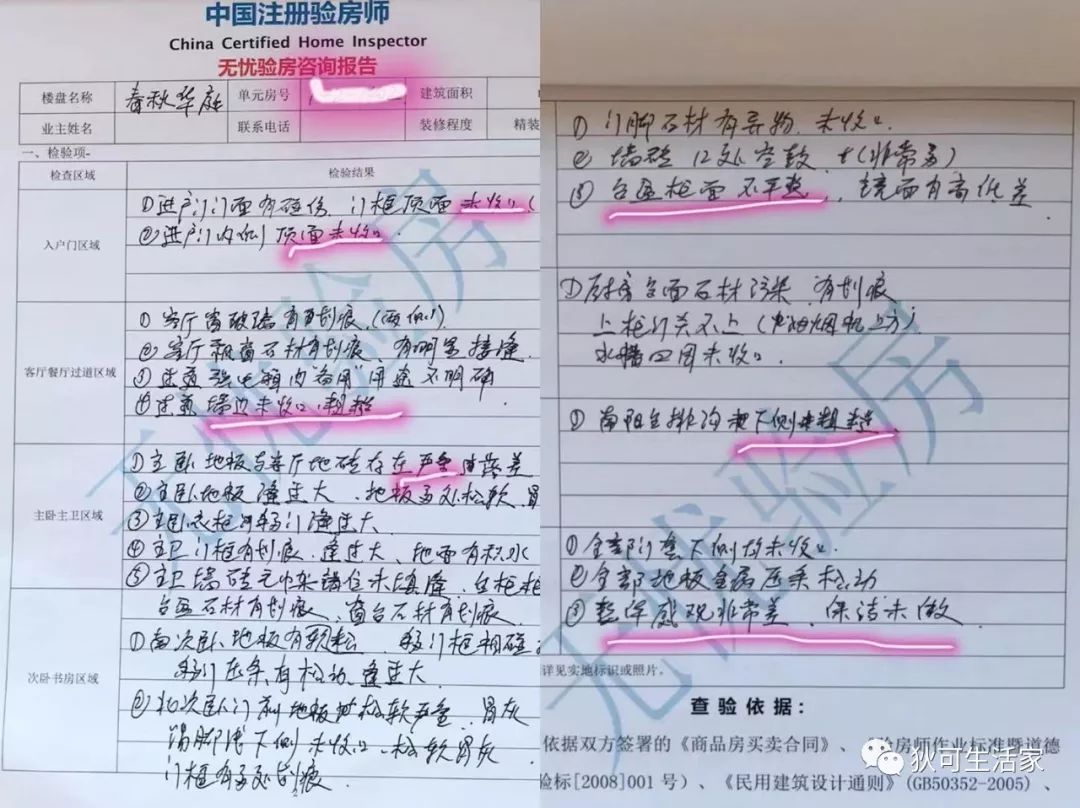 中国注册验房师
China Certified Home Inspector
无忧验房咨询报告
楼盘名称 春秋华庭 单元房号 建筑面积
业主姓名 联系电话 装修程度 精装
一、检验项-
检查区域 检验结果
入户门区域
①进户门门面有碰伤、门框顶面未收口(
②进户门内侧顶面未收口.
客厅餐厅过道区域
① 客厅窗玻璃有划痕(两侧)
② 客厅飘窗石材有划痕、有明显接缝
③ 过道强电箱内"备用"用途不明确
④ 过道墙边未收口、粗糙
主卧主卫区域
①主卧地板与客厅地砖存在严重 落差
②主卧地板缝过大、地板多处松软、冒
③主卧衣柜 移门缝过大
④主卫门框有划痕、缝过大、地面有积水
⑤主卫墙砖毛巾架错位未填缝、台柜柜
台面石材有划痕、窗台石材有划痕
次卧书房区域
①南次卧地板有颗松、移门框相碰
移门压条有松动、缝过大
②北次卧门前地板 松软严重、冒灰
踢脚线下侧未收口、松软冒灰
门框有多处划痕
① 门脚石材有异物、未收口
② 墙砖12处空鼓 (非常多)
③ 台面柜面不平整、镜面有高低差
①厨房台面石材污染、有划痕
上柜门关不上(抽油烟机上方)
水槽四周未收口.
① 南阳台排沟 下侧 粗糙
① 全部门套下侧均未收口.
② 全部地板金属压条松动
③ 整体感观非常差、保洁未做
详见实地标识或照片。
查验依据：
依据双方签署的《商品房买卖合同》、 验房师作业标准暨道德
验标[2008]001号)、《民用建筑设计通则》(GB50352-2005)、
狄可生活家